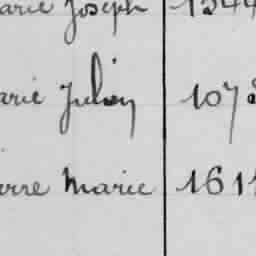 arie Joseph 1344
arie Julien 107
ierre Marie 1611